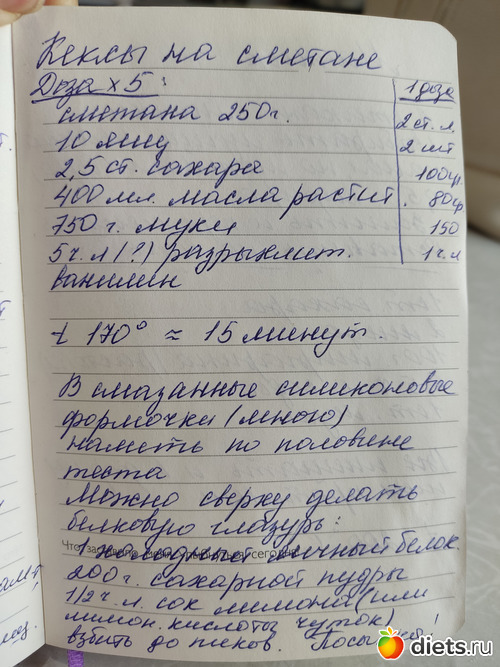 Кексы на сметане
Доза х 5: 1 доза
сметана 250г. 2 ст. л.
10 яиц 2 шт
2,5 ст. сахара 100гр.
400 мл. масла растит. 80гр.
750 г. муки 150
5ч. л (?) разрыхлит. 1 ч. л
ванилин
t 170° ≈ 15 минут.
В смазанные силиконовые
формочки (много)
налить по половине
теста
Можно сверху делать
белковую глазурь:
1 холодный яичный белок.
200г. сахарной пудры
1/2 ч. л. сок лимона (или
лимон. кислоты чуток)
взбить до пиков.
diets.ru